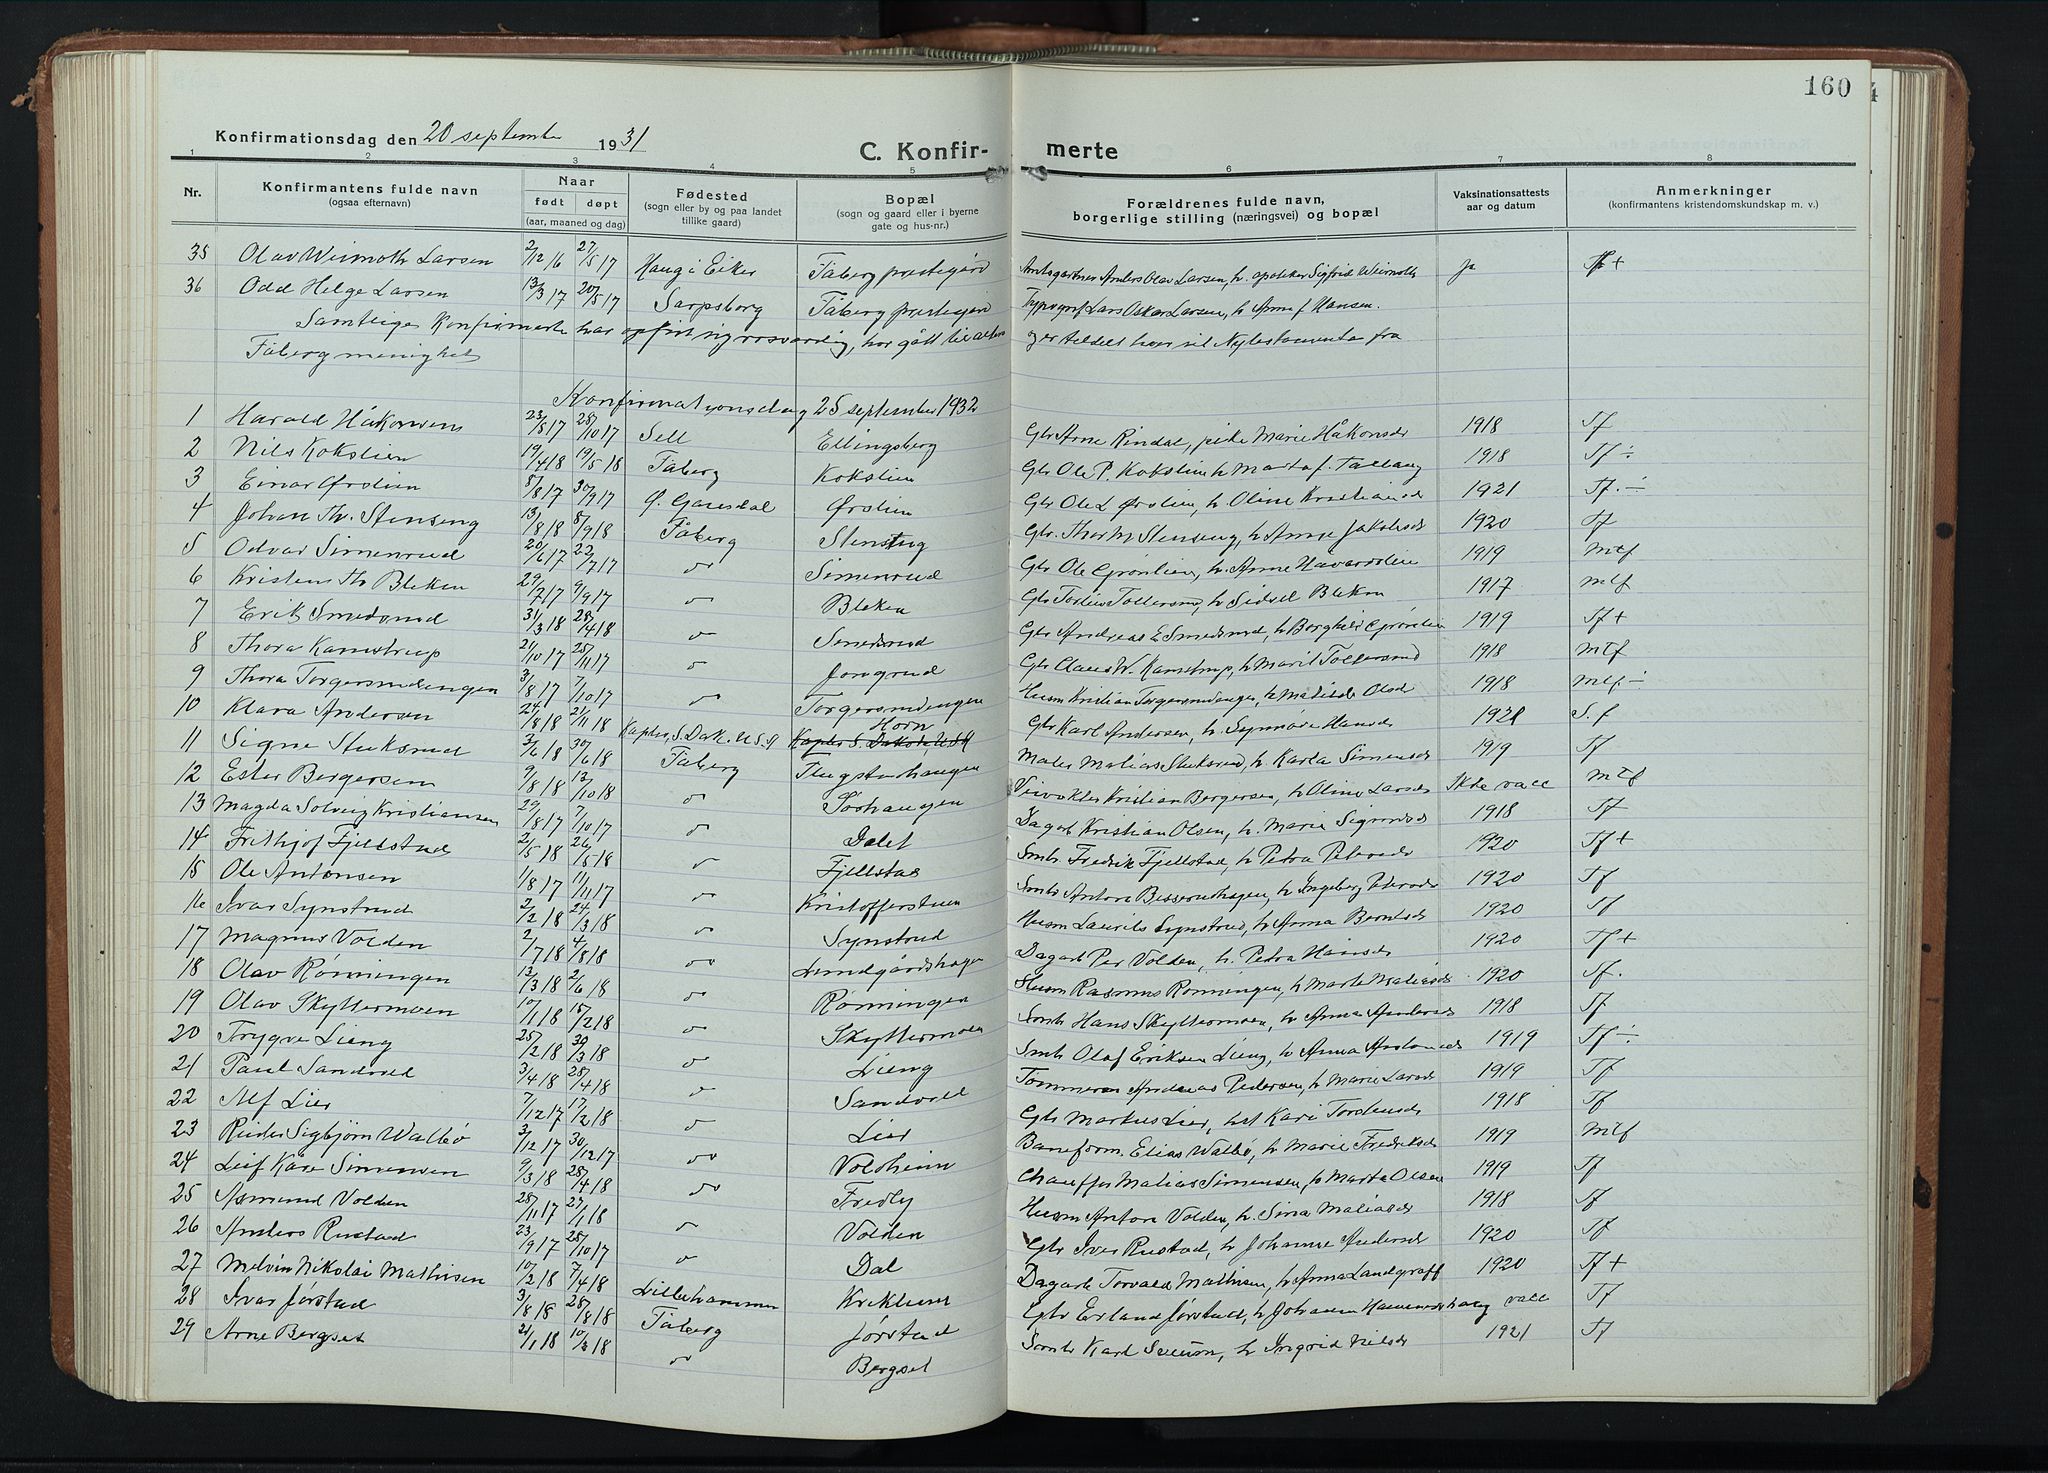 160
Konfirmationsdag den 20 september 1931
C. Konfir- merte
1 2 3 4 5 6 7 8
Nr. Konfirmantens fulde navn (ogsaa efternavn) Naar født døpt (aar, maaned og dag) Fødested (sogn eller by og paa landet tillike gaard) Bopæl (sogn og gaard eller i byerne gate og hus-nr.) Forældrenes fulde navn, borgerlige stilling (næringsvei) og bopæl Vaksinationsattests aar og datum Anmerkninger (konfirmantens kristendomskundskap m. v.)
35 Olav Weimoth Larsen 2/12 16 27/5 17 Haug i Eiker Fåberg prestegård Anders Olav Larsen, h. Sigfrid Weimoth ja
36 Odd Helge Larsen 13/3 17 20/5 17 Sarpsborg Fåberg prestegård Typograf Lars Oskar Larsen, h Anne f Hansen.
Samtlige konfirmerte har opført sig rosværdig, har gått til alters og er tildelt hver sit Nytestamente fra
Fåberg menighet
Konfirmationsdag 25 september 1932
1 Harald Håkonsen 23/5 17 28/10 17 Sell Ellingsberg Gbr Arne Rindal, pike Marie Håkonsdr 1918 Tf
2 Nils Kokslien 19/4 18 19/5 18 Fåberg Kokslien Gbr Ole P. Kokslien h Marta f. Tallaug 1918 Tf ÷
3 Einar Ørslien 8/8 17 30/9 17 Ø. Gausdal Ørslien Gbr Ole L Ørslien, h Oline Kristiansdr 1921 Tf. ÷
4 Johan Th. Stenseng 13/8 18 8/9 18 Fåberg Stenseng Gbr. Thor M Stenseng, h Anne Jakobsdr 1920 Tf
5 Odvar Simenrud 20/6 17 22/7 17 Simenrud Gbr Ole Grønlien, h. Anne Håvardslie 1919 Mtf
6 Kristen Th Bleken 29/7 17 9/9 17 Bleken Gbr Torleiv Tollersrud, h Sidsel Bleken 1917 Mtf
7 Erik Smedsrud 31/3 18 28/4 18 Smedsrud Gbr Andreas E Smedsrud, h Borghild Grønlien 1919 Tf +
8 Thora Kamstrup 21/10 17 25/11 17 Jongrud Gbr Claus W. Kamstrup, h. Marit Tollersrud 1918 Mtf
9 Thora Torgersrudengen 3/8 17 7/10 17 Torgersrudengen Husm Kristian Torgersrudengen, h Matilde Olsdr 1918 Mtf ÷
10 Klara Andersen 24/8 18 21/11 18 S. Dak. U.S.A Horn Gbr Karl Andersen, h Synnøve Hansdr 1921 S. f
11 Signe Stuksrud 3/6 18 30/6 18 Fåberg Flugstuhaugen Maler Matias Stuksrud, h. Karla Simensdr 1919 Tf
12 Ester Bergersen 9/8 18 13/10 18 Sørhaugen Kristian Bergersen, h Oline Larsdr Ikke vacc Mtf
13 Magda Solveig Kristiansen 29/8 17 7/10 17 Dalet Dagarb Kristian Olsen, h. Marie Sigurdsdr 1918 Tf
14 Frithjof Fjellstad 2/5 18 26/5 18 Fjellstad Smbr Fredrik Fjellstad, h Petra Petersdr 1920 Tf +
15 Ole Antonsen 1/8 17 11/11 17 Kristofferstuen Smbr Anton Besserudhagen, h Ingeborg Petersdr 1920 Tf
16 Ivar Synstrud 2/2 18 24/3 18 Synstrud Husm Laurits Synstrud, h Anna Berntsdr 1920 Tf
17 Magnus Volden 2/7 18 4/8 18 Lundgårdshagen Dagarb Per Volden, h. Petra Hansdr 1920 Tf +
18 Olav Rønningen 13/3 18 2/6 18 Rønningen Husm Rasmus Rønningen, h Marte Matiasdr 1920 Tf.
19 Olav Skyttermoen 10/1 18 15/2 18 Skyttermoen Smbr Hans Skyttermoen, h Anna Andersdr 1918 Tf
20 Trygve Lieng 25/2 18 30/3 18 Lieng Smbr Olaf Eriksen Lieng, h Anna Antonsdr 1919 Tf ÷
21 Paul Sandvold 3/4 18 28/4 18 Sandvold Tømmerm Andreas Pedersen, h Marie Larsdr 1919 Tf
22 Alf Lier 7/12 17 17/2 18 Lier Gbr Markus Lier, h Kari Torstensdr 1918 Tf
23 Reidar Sigbjørn Walbø 3/12 17 30/12 17 Voldheim Baneform. Elias Walbø, h Marie Fredriksdr 1919 Mtf
24 Leif Kåre Simensen 9/3 18 28/4 18 Fredly Chauffør Matias Simensen, h Marta Olsen 1919 Tf
25 Asmund Volden 28/11 17 27/1 18 Volden Husm Anton Volden, h. Sina Matiasdr 1918 Tf
26 Anders Rustad 23/9 17 28/10 17 Dal Gbr Iver Rustad, h Johanne Andersdr 1920 Tf
27 Melvin Nikolai Mathisen 10/2 18 7/4 18 Lillehammer Dagarb Torvald Mathisen, h Anna Landgraff 1920 Tf +
28 Ivar Jørstad 3/8 18 28/8 18 Fåberg Jørstad Gbr Erland Jørstad, h Johanne vacc Tf
29 Arne Bergset 21/1 18 10/3 18 Bergset Smbr Karl Sveum, h Ingrid Nilsdr 1921 Tf